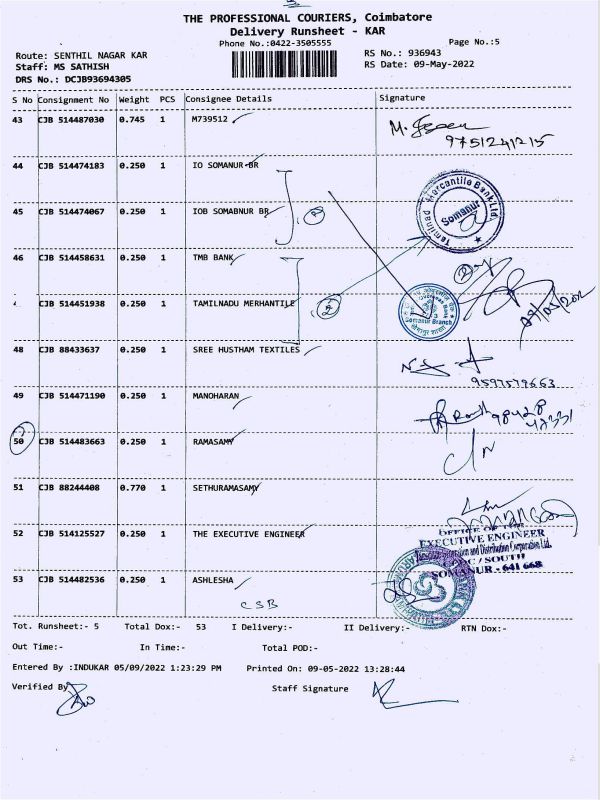 THE PROFESSIONAL COURIERS, Coimbatore
Delivery Runsheet - KAR
Phone No.:0422-3505555
Page No.:5
Route: SENTHIL NAGAR KAR
RS No.: 936943
Staff: MS SATHISH
RS Date: 09-May-2022
DRS No.: DCJB93694305
S No Consignment No Weight PCS Consignee Details Signature
43 CJB 514487030 0.745 1 M739512
9751241215
44 CJB 514474183 0.250 1 IO SOMANUR-BR
45 CJB 514474067 0.250 1 IOB SOMABNUR BR
2
Tamilnad Mercantile Bank Ltd.
Somanur
46 CJB 514458631 0.250 1 TMB BANK
CJB 514451938 0.250 1 TAMILNADU MERHANTILE
2
Overseas Bank
Somanur Branch
48 CJB 88433637 0.250 1 SREE HUSTHAM TEXTILES
9597579663
49 CJB 514471190 0.250 1 MANOHARAN
50 CJB 514483663 0.250 1 RAMASAMY
51 CJB 88244408 0.770 1 SETHURAMASAMY
52 CJB 514125527 0.250 1 THE EXECUTIVE ENGINEER
OFFICE OF THE
EXECUTIVE ENGINEER
and Distribution Corporation Ltd.
/ SOUTH
SOMANUR - 641 668
53 CJB 514482536 0.250 1 ASHLESHA
CSB
Tot. Runsheet:- 5 Total Dox:- 53 I Delivery:- II Delivery:- RTN Dox:-
Out Time:- In Time:- Total POD:-
Entered By :INDUKAR 05/09/2022 1:23:29 PM Printed On: 09-05-2022 13:28:44
Verified By Staff Signature